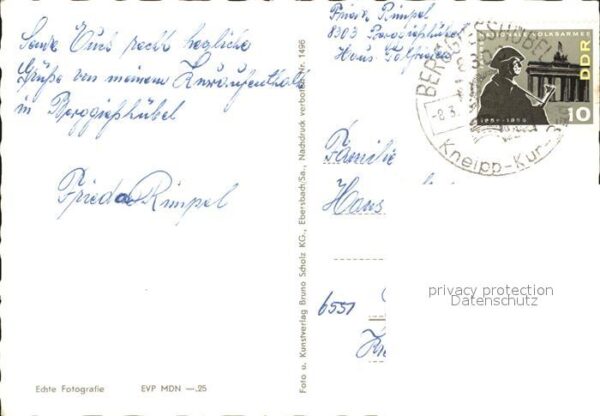 Sende Euch recht herzliche
Grüße von meinem Kuraufenthalt
in Berggießhübel
Frieda Rimpel
Echte Fotografie EVP MDN —.25
Foto u. Kunstverlag Bruno Scholz KG., Ebersbach/Sa., Nachdruck verboten Nr. 1496
Frieda Rimpel
8303 Berggießhübel
Haus
BERGGIESSHÜBEL
-8.3.
Kneipp-Kur-
NATIONALE VOLKSARMEE
DDR
1956-1966
10
Familie
Hans
6551
privacy protection
Datenschutz